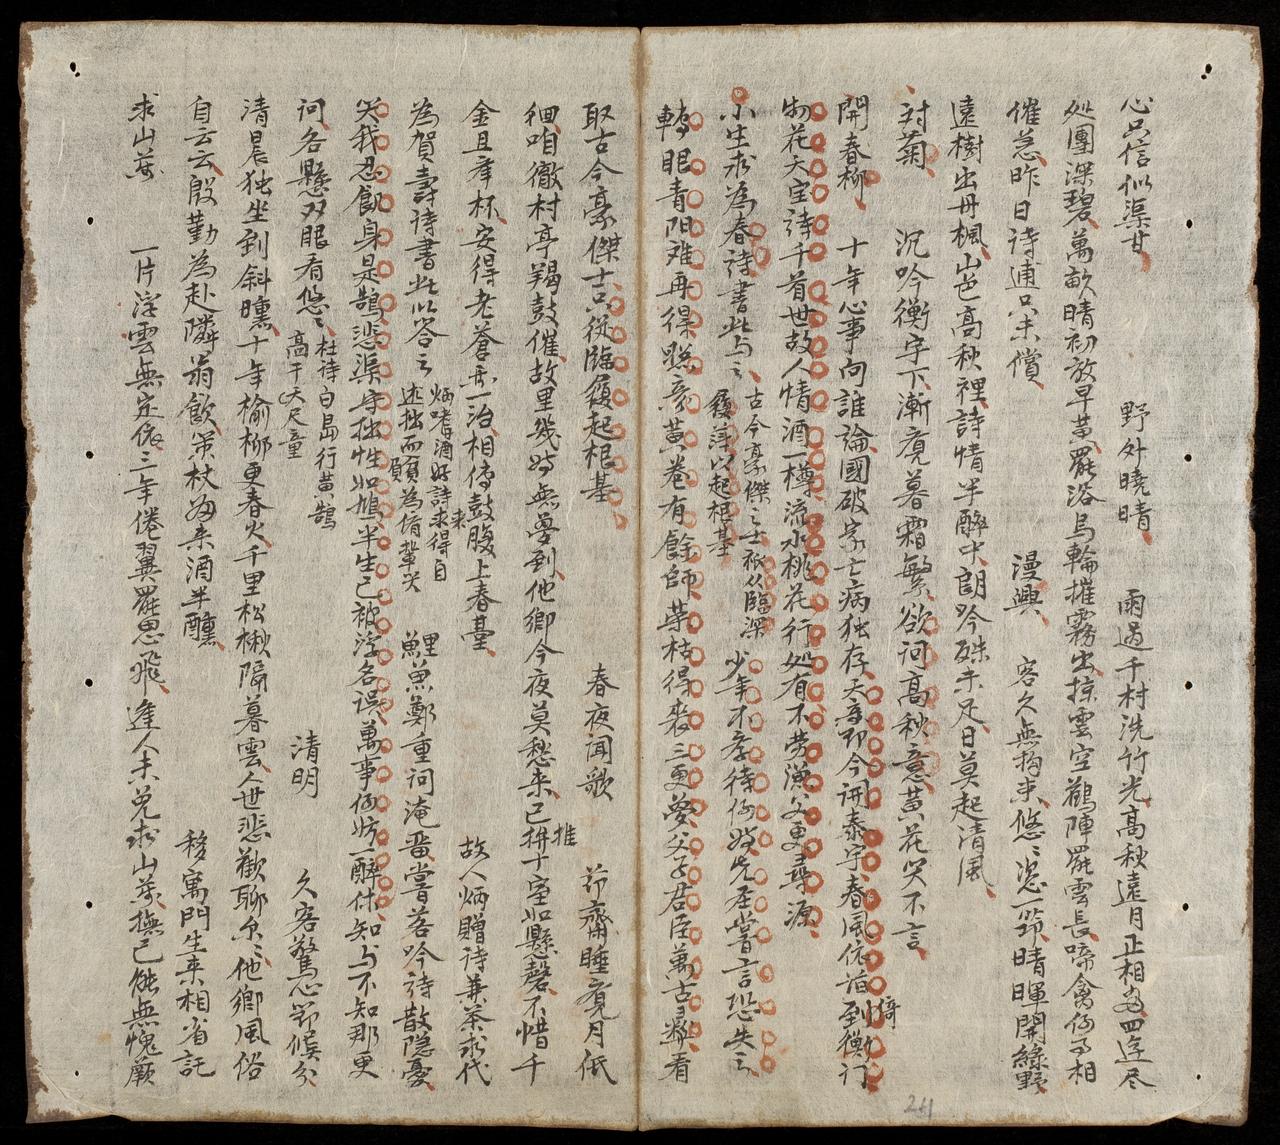 心只信似渠甘　野外曉晴　雨過千村洗竹光高秋遠月正相當四邊尽
処團深碧萬畝晴初放早黃罷浴烏輪摧霧出掠雲空鶴陣罷雲長啼禽何事相
催急昨日詩逋只未償　漫興　客久無拘束悠〻恣一笻晴暉開綠野
遠樹出丹楓山色高秋裡詩情半醉中朗吟殊未足日莫起清風
対菊　沉吟衡宇下漸覚暮霜繁欲问高秋意黃花笑不言
開春柳　十年心事向誰論國破家亡病独存天意即今開泰宇春風依旧到衡门
物花天宝詩千首世故人情酒一樽流水桃花行処有不劳漁父更尋源
小生求為春詩書此与之　古今豪傑之士祇從臨深履薄以起根基　少年不孝待何時先圣嘗言恐失之
轉眼青阳难再得聪彦黃卷有餘師荣枯得丧三更夢父子君臣萬古彝看
取古今豪傑士只從臨履起根基　春夜闻歌　茆齋睡覚月低
徊咱徹村亭羯鼓催故里幾时無夢到他鄉今夜莫愁来已拚十室如懸磬不惜千
金且举杯安得老蒼再一治相傳鼓腹上春臺　故人炳贈詩兼茶求代
為賀壽詩書此以答之　炳嗜酒好詩求得自逃拙而頗為侪輩笑　鯉魚鄭重问淹番嘗茗吟詩散隐憂
笑我忍飢身是鵠悲渠守拙性如鳩半生已被浮名误萬事何妨一醉休知与不知那更
问各懸双眼看悠〻　杜诗白島行黃鵠高于天尺童　清明　久客驚心節候分
清晨独坐到斜曛十年榆柳更春火千里松楸隔暮雲人世悲歡聊尔〻他鄉風俗
自云云殷勤為赴隣翁飲策杖归来酒半醺　移寓門生来相省託
求山藥　一片浮雲無定依三年倦翼罷思飛逢人未免求山藥撫己能無愧蕨